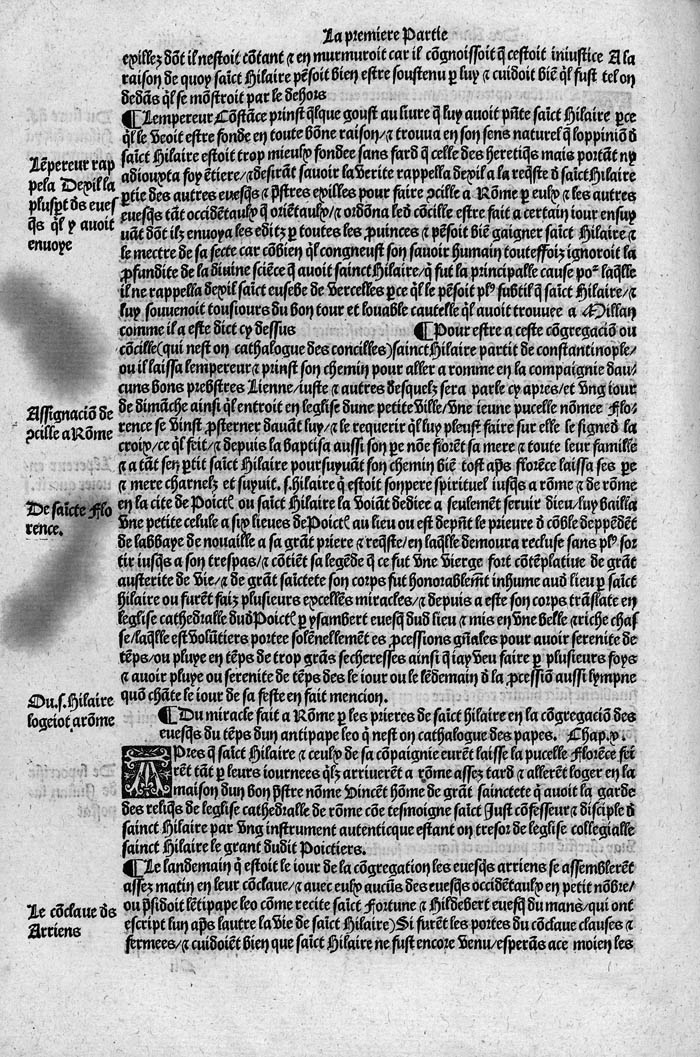 La premiere Partie
exillez dõt il nestoit cõtant ⁊ en murmuroit car il cõgnoissoit q̃ cestoit iniustice A la
raison de quoy saĩct Hilaire pẽsoit bien estre soustenu ꝑ luy ⁊ cuidoit biẽ q̃l fust tel on
dedãs q̃l se mõstroit par le dehors
¶ Lempereur Cõstãce prinst q̃lque goust au livre q̃ luy avoit pñte saĩct Hilaire ꝑce
q̃l le veoit estre fonde en toute bõne raison/⁊ trouva en son sens naturel q̃ loppiniõ d̃
saĩct Hilaire estoit trop mieulx fondee sans fard q̃ celle des heretiq̃s mais portãt ny
adiouxta foy ẽtiere/⁊ desirãt savoir la verite rappella dexil a la reqste d̃ saĩct Hilaire
ꝑtie des autres evesq̃s ⁊ p̃stres exilles pour faire ꝯcille a Rõme ꝑ eulx ⁊ les autres
evesq̃s tãt occidẽtaulx q̃ oriẽtaulx/⁊ ordõna led̃ cõcille estre fait a certain iour ensuy
uãt dõt ilz envoya les editz ꝑ toutes les ꝓuinces ⁊ pẽsoit biẽ gaigner saĩct Hilaire ⁊
le mectre de sa secte car cõbiẽn q̃l congneust son savoir humain touteffoiz ignoroit la
ꝓfundite de la divine sciẽce q̃ avoit sainct Hilaire/q̃ fut la principalle cause poꝰ laq̃lle
il ne rappella dexil saĩct eusebe de Vercelles ꝑce q̃l le pẽsoit plꝰ subtil q̃ saĩct Hilaire/⁊
luy souvenoit tousiours du bon tour et louable cautelle q̃l avoit trouvee a Millan
comme il a este dict cy dessus ¶ Pour estre a ceste cõgregaciõ ou
cõcille(qui nest on cathalogue des concilles)sainct Hilaire partit de constantinople/
ou il laissa lempereur ⁊ prinst son chemin pour aller a romme en la compaignie dau/
cuns bons prebstres Lienne/iuste ⁊ autres desquelz sera parle cy apres/et vng iour
de dimãche ainsi q̃l entroit en leglise dune petite ville/vne ieune pucelle nõmee Flo/
rence se vinst ꝓsterner davãt luy/⁊ le requerir q̃l luy pleust faire sur elle le signe d̃ la
croix/ce q̃l feit/⁊ depuis la baptisa aussi son ꝑe nõe florẽt sa mere ⁊ toute leur famille
⁊ a tãt sen ꝑtit saĩct Hilaire poursuyuãt son chemin biẽ tost ap̃s florẽce laissa ses ꝑe
⁊ mere charnelz et suyuit .s. hilaire q̃ estoit son pere spirituel iusq̃s a rõme ⁊ de rõme
en la cite de Poictꝭ ou saĩct Hilaire la voiãt dediee a seulemẽt servir dieu/luy bailla
vne petite celule a six lieues de Poictꝭ au lieu ou est dep̃ñt le prieure d̃ cõble deppẽdẽt
de labbaye de nouaille a sa grãt priere ⁊ reqste/en laq̃lle demoura recluse sans plꝰ sor
tir iusq̃s a son trespas/⁊ cõtiẽt sa legẽde q̃ ce fut vne vierge fort cõtẽplatiue de grãt
austerite de vie/⁊ de grãt saĩctete son corps fut honorablemẽt inhume aud lieu ꝑ saĩct
hilaire ou furẽt faiz plusieurs excellẽs miracles/⁊ depuis a este son corps trãslate en
leglise cathedralle dud̃ Poictꝭ ꝑ ysambert evesq̃ dud lieu ⁊ mis en vne belle ⁊ riche chas
se/laq̃lle est volũtiers portee solẽnellemẽt es ꝓcessions gñales pour avoir serenite de
tẽps/ou pluye en tẽps de trop grãs secheresses ainsi q̃ iay veu faire ꝑ plusieurs foys
⁊ avoir pluye ou serenite de tẽps des le iour ou le lẽdemain d̃ la ꝓcessiõ aussi lympne
quõ chãte le iour de sa feste en fait mencion.
¶ Du miracle fait a Rõme ꝑ les prieres de saĩct hilaire en la cõgregaciõ des
evesq̃s du tẽps dun antipape leo q̃ nest on cathalogue des papes. Chap.x.
APres q̃ saĩct Hilaire ⁊ ceulx de sa cõpaignie eurẽt laisse la pucelle Florẽce fei
rẽt tãt ꝑ leurs iournees q̃lz arriverẽt a rõme assez tard ⁊ allerẽt loger en la
maison dun bon p̃stre nõme Vincẽt hõme de grãt sainctete q̃ avoit la garde
des reliq̃s de leglise cathedralle de rõme cõe tesmoigne saĩct Just cõfesseur ⁊ disciple d̃
sainct Hilaire par vng instrument autenticque estant on tresor de leglise collegialle
sainct Hilaire le grant dudit Poictiers.
¶ Le landemain q̃ estoit le iour de la cõgregation les evesq̃s arriens se assemblerẽt
assez matin en leur cõclave/⁊ avec eulx aucũs des evesq̃s occidẽtaulx en petit nõbre/
ou p̃sidoit lẽtipape leo cõme recite saĩct Fortune ⁊ Hildebert evesq̃ du mans/qui ont
escript lun ap̃s lautre la vie de saĩct Hilaire)Si furẽt les portes du cõclave clauses ⁊
fermees/⁊ cuidoiẽt bien que saĩct Hilaire ne fust encore venu/esperãs a ce moien les
Lẽpereur rap
pela Dexil la
plusꝑt d̃s eves
q̃s q̃l y avoit
envoye
Assignaciõ de
ꝯcille a Rõme
De saĩcte Flo
rence.
Ou .s. Hilaire
logeiot a rõme
Le cõclave d̃s
Arriens